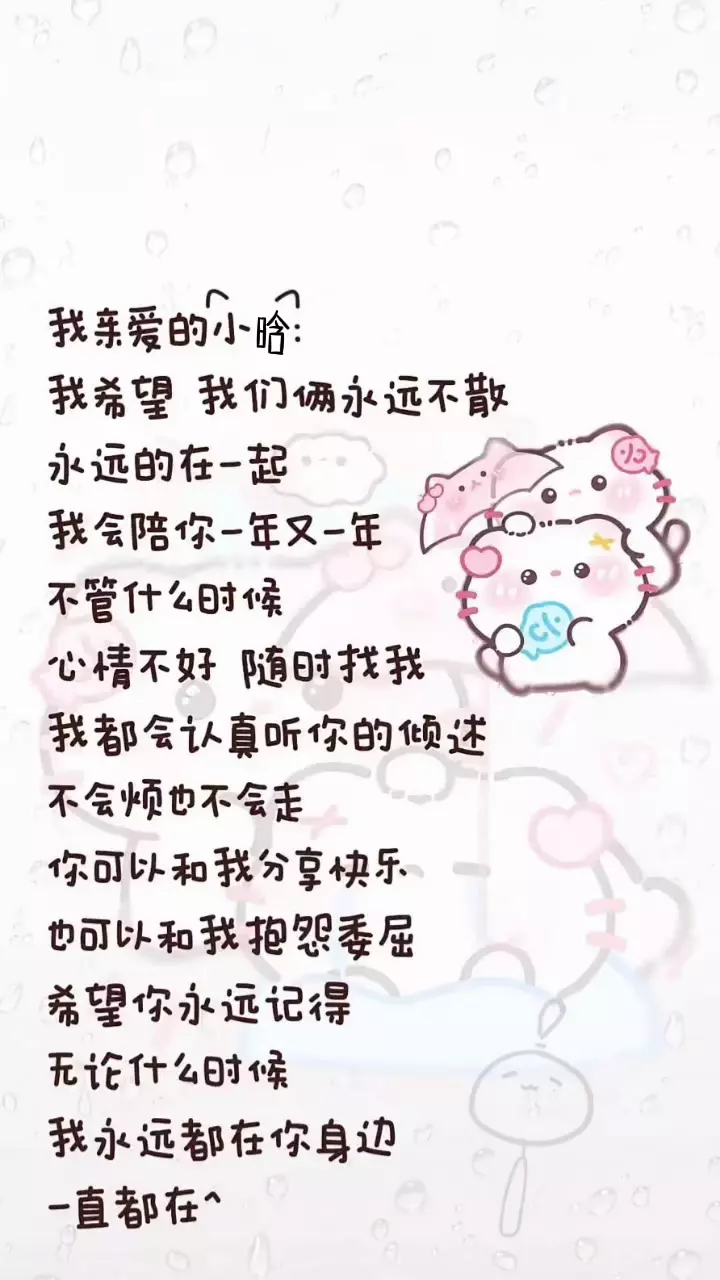 我亲爱的小晗:
我希望 我们俩永远不散
永远的在一起
我会陪你一年又一年
不管什么时候
心情不好 随时找我
我都会认真听你的倾述
不会烦也不会走
你可以和我分享快乐
也可以和我抱怨委屈
希望你永远记得
无论什么时候
我永远都在你身边
一直都在^